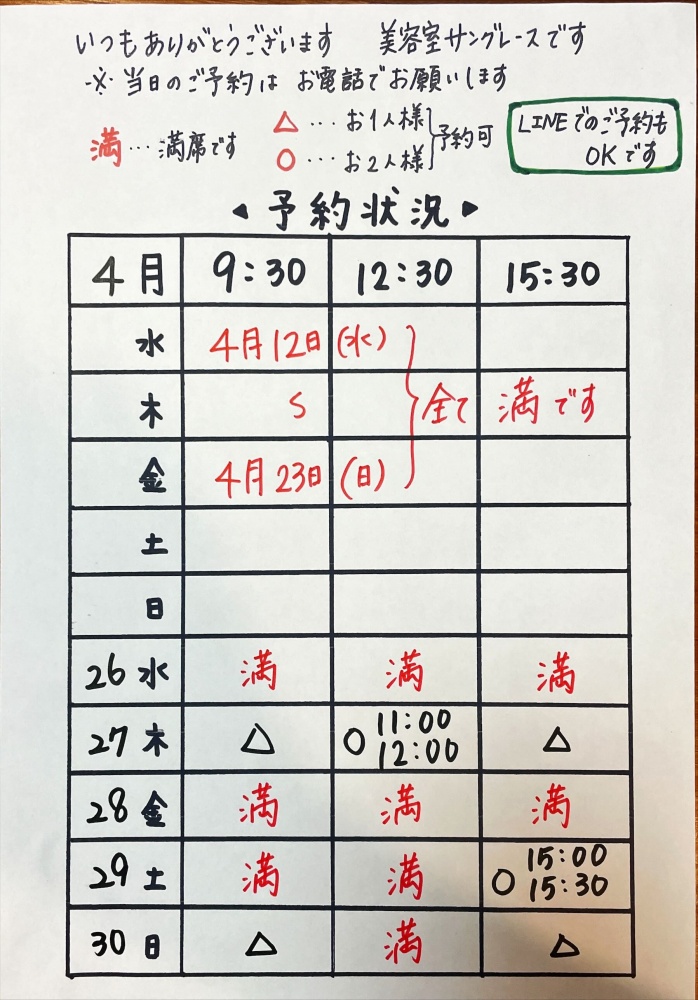 いつもありがとうございます 美容室サングレースです
※当日のご予約は お電話でお願いします
満…満席です
△…お1人様
○…お2人様
予約可
LINEでのご予約も
OKです
◀予約状況▶
4月 9:30 12:30 15:30
水 4月12日(水)
木 S 全て 満です
金 4月23日(日)
土
日
26水 満 満 満
27木 △ ○ 11:00 12:00 △
28金 満 満 満
29土 満 満 ○ 15:00 15:30
30日 △ 満 △